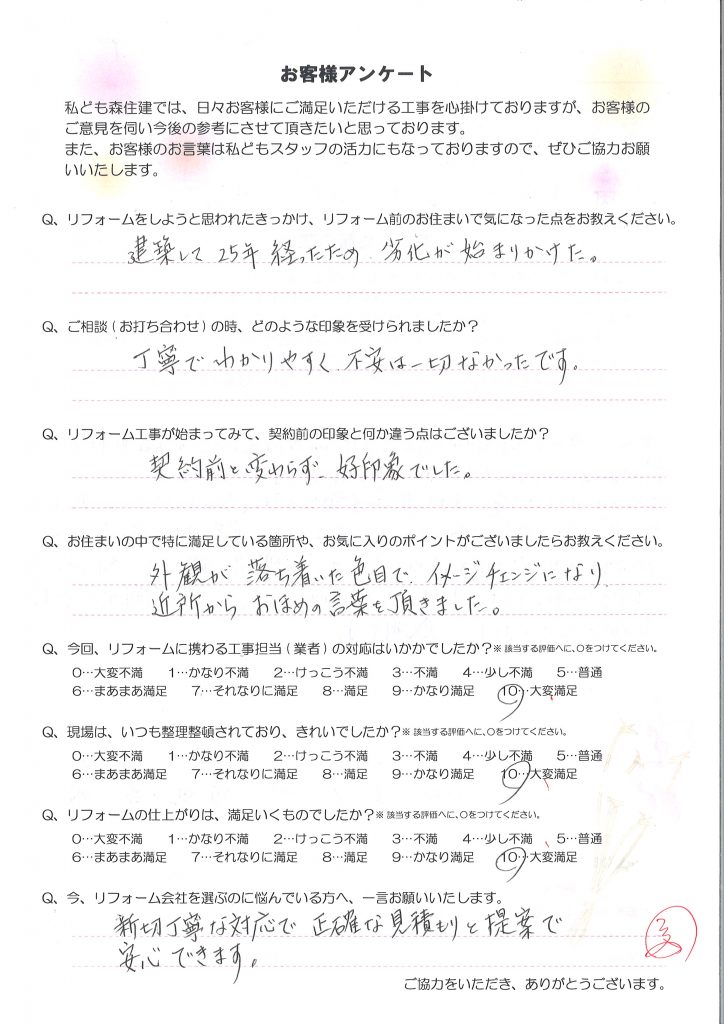 お客様アンケート
私ども森住建では、日々お客様にご満足いただける工事を心掛けておりますが、お客様の
ご意見を伺い今後の参考にさせて頂きたいと思っております。
また、お客様のお言葉は私どもスタッフの活力にもなっておりますので、ぜひご協力お願
いいたします。
Q、リフォームをしようと思われたきっかけ、リフォーム前のお住まいで気になった点をお教えください。
建築して 25年 経ったため 劣化が 始まりかけた。
Q、ご相談(お打ち合わせ)の時、どのような印象を受けられましたか?
丁寧で わかりやすく、不安は一切なかったです。
Q、リフォーム工事が始まってみて、契約前の印象と何か違う点はございましたか?
契約前と変わらず、好印象でした。
Q、お住まいの中で特に満足している箇所や、お気に入りのポイントがございましたらお教えください。
外観が 落ち着いた色目で、イメージチェンジになり、
近所から おほめの言葉も頂きました。
Q、今回、リフォームに携わる工事担当(業者)の対応はいかがでしたか?※該当する評価へに、〇をつけてください。
0…大変不満 1…かなり不満 2…けっこう不満 3…不満 4…少し不満 5…普通
6…まあまあ満足 7…それなりに満足 8…満足 9…かなり満足 10…大変満足
Q、現場は、いつも整理整頓されており、きれいでしたか?※該当する評価へに、〇をつけてください。
0…大変不満 1…かなり不満 2…けっこう不満 3…不満 4…少し不満 5…普通
6…まあまあ満足 7…それなりに満足 8…満足 9…かなり満足 10…大変満足
Q、リフォームの仕上がりは、満足いくものでしたか?※該当する評価へに、〇をつけてください。
0…大変不満 1…かなり不満 2…けっこう不満 3…不満 4…少し不満 5…普通
6…まあまあ満足 7…それなりに満足 8…満足 9…かなり満足 10…大変満足
Q、今、リフォーム会社を選ぶのに悩んでいる方へ、一言お願いいたします。
新切丁寧な対応で 正確な見積もりと提案で
安心できます。
ご協力をいただき、ありがとうございます。